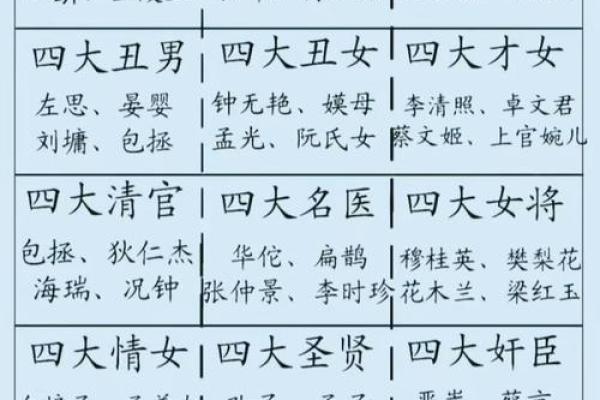 四大丑男
左思、晏婴
刘墉、包拯
四大丑女
钟无艳、嫫母
孟光、阮氏女
四大才女
李清照、卓文君
蔡文姬、上官婉儿
四大清官
包拯、狄仁杰
海瑞、况钟
四大名医
华佗、扁鹊
张仲景、李时珍
四大女将
穆桂英、樊梨花
花木兰、梁红玉
四大情女
四大圣贤
四大奸臣